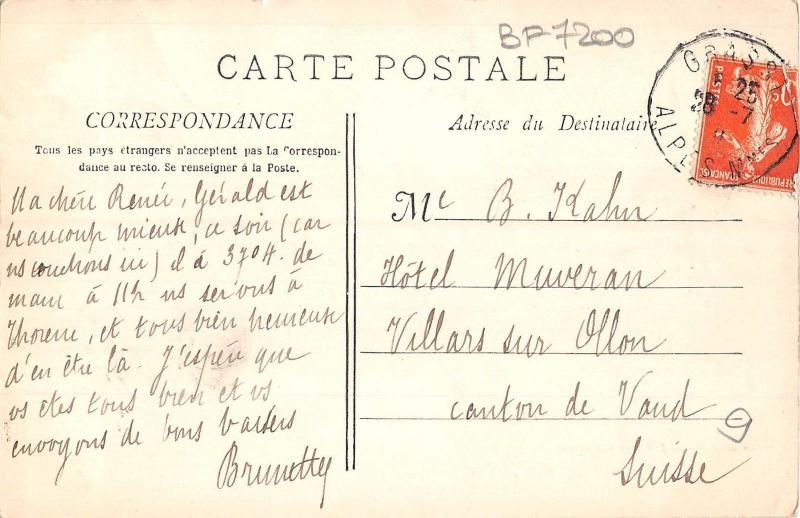 BF 7200
CARTE POSTALE
CORRESPONDANCE
Tous les pays étrangers n'acceptent pas La Correspon-
dance au resto. Se renseigner à la Poste.
Ma chère Renée, Gérald est
beaucoup mieux, ce soir (car
ns couchons ici) il a 37°4. de
main à 11h ns serons à
Thorenc, et tous bien heureux
d'en être là. J'espère que
vs êtes tous bien et vs
envoyons de bons baisers
Brunette
Adresse du Destinataire
GRASSE
25
28 -7
ALPES Mmes
REPUBLIQUE FRANÇAISE
POSTES
Me B. Kahn
Hôtel Muveran
Villars sur Ollon
canton de Vaud
Suisse
9